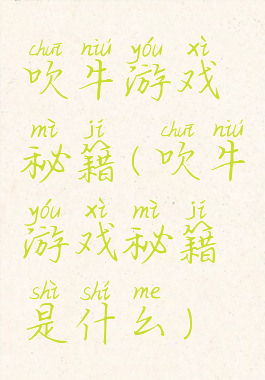 chuī niú yóu xì
吹牛游戏
mì jí chuī niú
秘籍(吹牛
yóu xì mì jí
游戏秘籍
shì shí me
是什么)